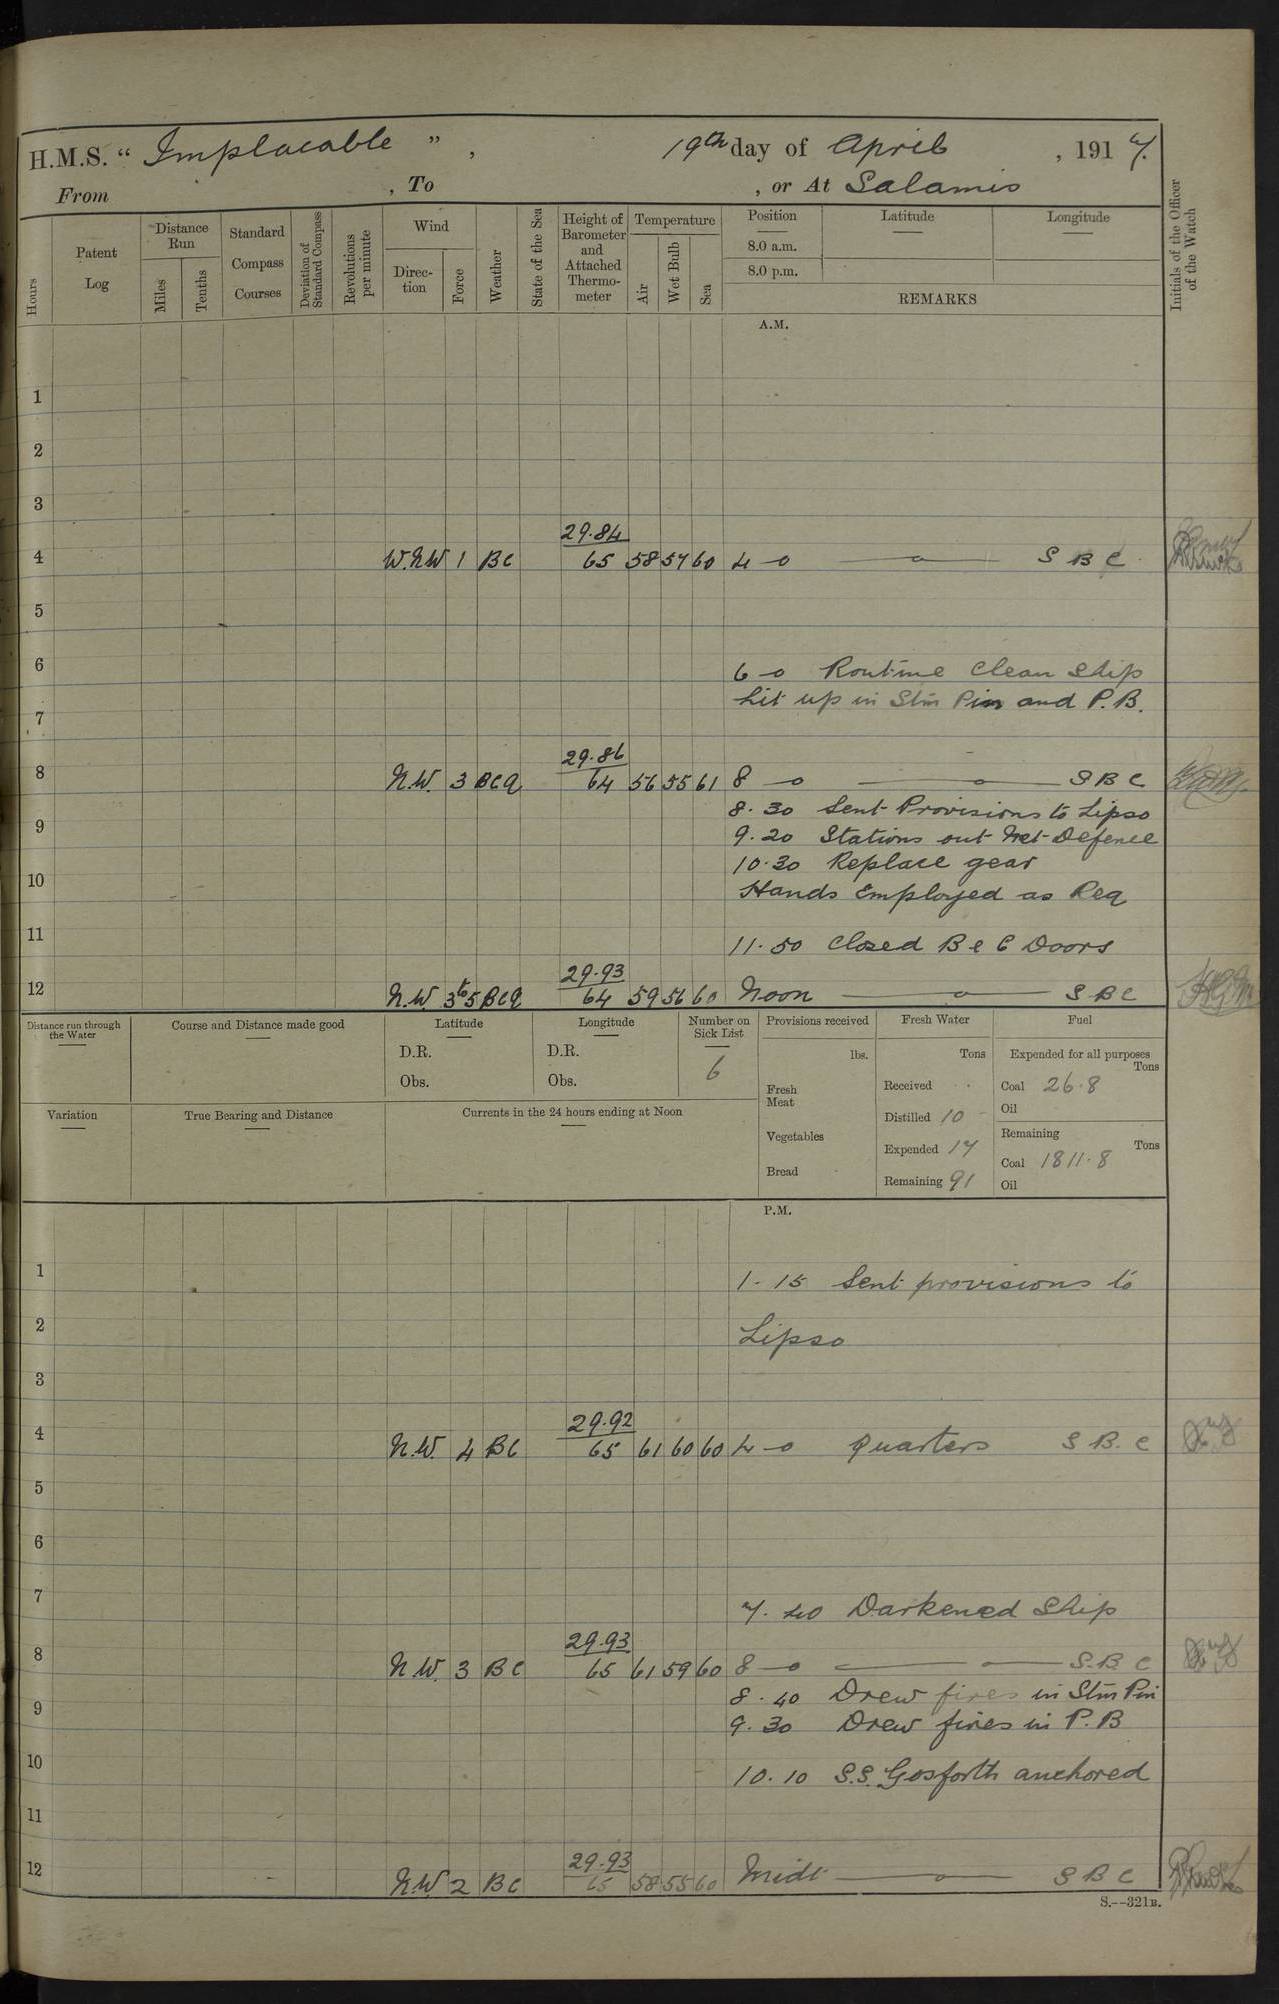 H.M.S. “ Implacable ” , 19th day of April , 1917.
From , To , or At Salamis
Hours
Patent Log
Distance Run
Miles
Tenths
Standard Compass Courses
Deviation of Standard Compass
Revolutions per minute
Wind
Direc-tion
Force
Weather
State of the Sea
Height of Barometer and Attached Thermo-meter
Temperature
Air
Wet Bulb
Sea
Position
8.0 a.m.
8.0 p.m.
Latitude
Longitude
REMARKS
Initials of the Officer of the Watch
A.M.
1
2
3
29.84
4 W.N.W 1 BC 65 58 57 60 4-0 S B C
5
6 6-0 Routine Clean Ship
Lit up in Stm Pin and P.B.
7
29.86
8 N.W. 3 BCQ 64 56 55 61 8-0 S B C
8.30 Sent Provisions to Lipso
9 9.20 Stations out Net Defence
10.30 Replace gear
10 Hands Employed as Req
11 11.50 Closed B & C Doors
29.93
12 N.W. 3to5 BCQ 64 59 56 60 Noon S B C
Distance run through the Water
Course and Distance made good
Latitude
D.R.
Obs.
Longitude
D.R.
Obs.
Number on Sick List
6
Provisions received
lbs.
Fresh Meat
Vegetables
Bread
Fresh Water
Tons
Received
Distilled 10
Expended 17
Remaining 91
Fuel
Expended for all purposes
Tons
Coal 26.8
Oil
Remaining
Tons
Coal 1811.8
Oil
Variation
True Bearing and Distance
Currents in the 24 hours ending at Noon
P.M.
1 1.15 Sent provisions to
2 Lipso
3
29.92
4 N.W. 4 BC 65 61 60 60 4-0 Quarters S.B.C
5
6
7 7.40 Darkened Ship
29.93
8 N.W. 3 BC 65 61 59 60 8-0 S.B.C
8.40 Drew fires in Stm Pin
9 9.30 Drew fires in P.B
10 10.10 S.S. Gosforth anchored
11
29.93
12 N.W. 2 BC 65 58 55 60 Midt S B C
S.--321B.